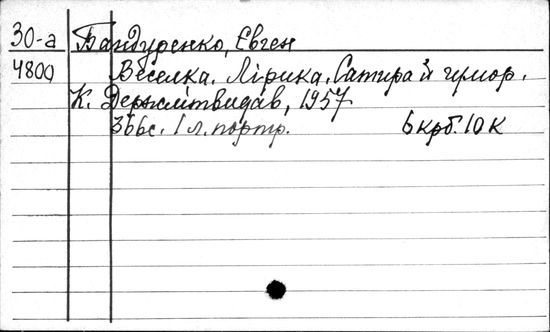 30-а Бандуренко, Євген
4800 Веселка. Лірика. Сатира й гумор.
К. Держлітвидав, 1957
366с. 1 л. портр. 6 крб. 10 к